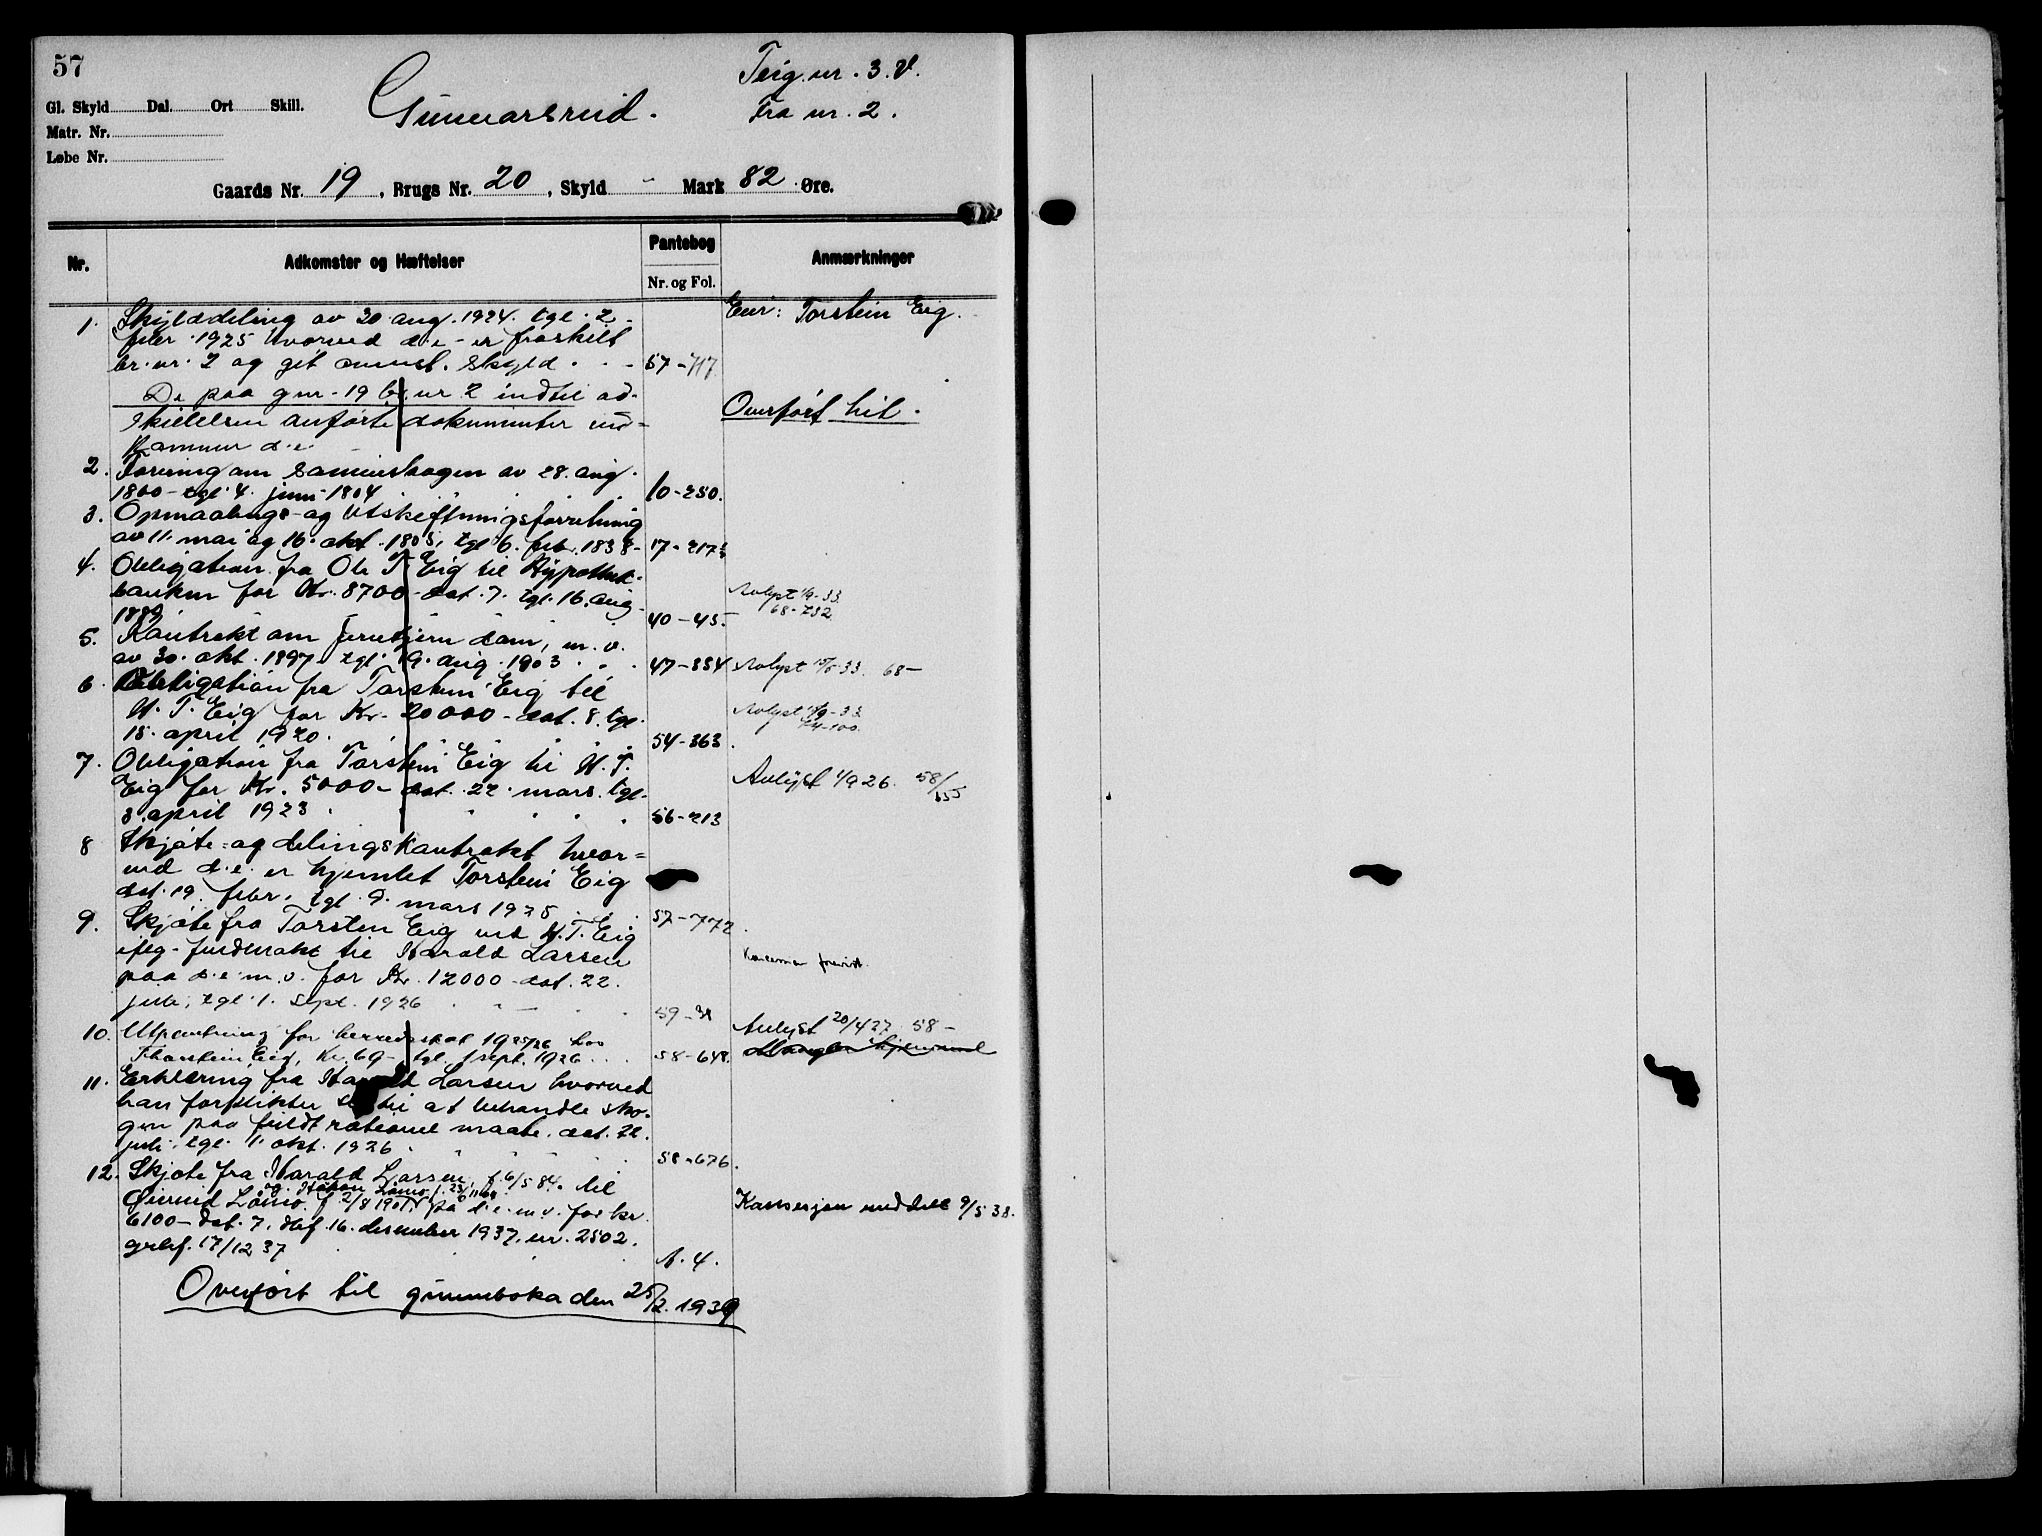 57
Teig. nr. 3. V.
Gl. Skyld Dal. Ort Skill.
Gunnarsrud.
Fra nr. 2.
Matr. Nr.
Løbe Nr.
Gaards Nr. 19, Brugs Nr. 20, Skyld - Mark 82 Øre.
Nr. Adkomster og Hæftelser Pantebog Anmærkninger
Nr. og Fol.
1. Skylddeling av 30 aug. 1924. tgl. 2. Eier: Torstein Eig.
febr. 1925 hvorved d.e. er fraskilt
br. nr. 2 og git omenst. skyld. 57-717.
De paa gnr. 19 br. nr. 2 indtil ad-
skillelsen anførte dokumenter ved- Overført hit.
kommer d.e.
2. Forening om Sameieskogen av 28. aug.
1800 - tgl. 4. juni 1804 10-250.
3. Opmaalings- og Utskiftningsforretning
av 11. mai og 16. okt. 1805, tgl. 6. febr. 1838- 17-217
4. Obligation fra Ole T. Eig til Hypothek-
banken for Kr. 8700 - dat. 7. tgl. 16. aug. Avlyst 1/9-33.
1889 40-45. 68-732
5. Kontrakt om dam, m.v.
av 30. okt. 1897. tgl. 19. aug. 1903 47-354 Avlyst -33. 68-
6. Obligation fra Torstein Eig til
H. T. Eig for Kr. 20000 - dat. 8. tgl. Avlyst -33.
15. april 1920. 54-363.
7. Obligation fra Torstein Eig til H. T.
Eig for Kr. 5000 - dat. 22. mars. tgl. Avlyst 1/9 26. 58/655
3. april 1923. 56-213
8 Skjøte- og delingskontrakt hvor-
ved d.e. er hjemlet Torstein Eig
dat. 19. febr., tgl. 9. mars 1925. 57-772.
9. Skjøte fra Torsten Eig ved H. T. Eig
iflg. fuldmakt til Harald Larsen
paa d.e. m.v. for Kr. 12000 - dat. 22.
juli, tgl. 1. sept. 1926 59-31
10. Utpantning for herredsskat 1925/26 hos Avlyst 20/4 27 58-
Thorstein Eig, Kr. 69 - tgl. 1 sept. 1926 58-648. Mangler hjemmel
11. Erklæring fra Harald Larsen hvorved
han forplikter sig til at behandle sko-
gen paa fuldt rationel maate. dat. 22.
juli, tgl. 1. okt. 1926. 58-676.
12. Skjøte fra Harald Larsen, f. 6/5 84. til
og Håkon Lømo f. 23/11
Lømo f. 2/8 1901 på d.e. m.v. for kr.
6100 - dat. 7. dbf. 16. desember 1937. nr. 2502. Konsesjon meddelt 9/5 38.
grbf. 17/12 37 A. 4.
Overført til grunnboka den 25/2. 1939